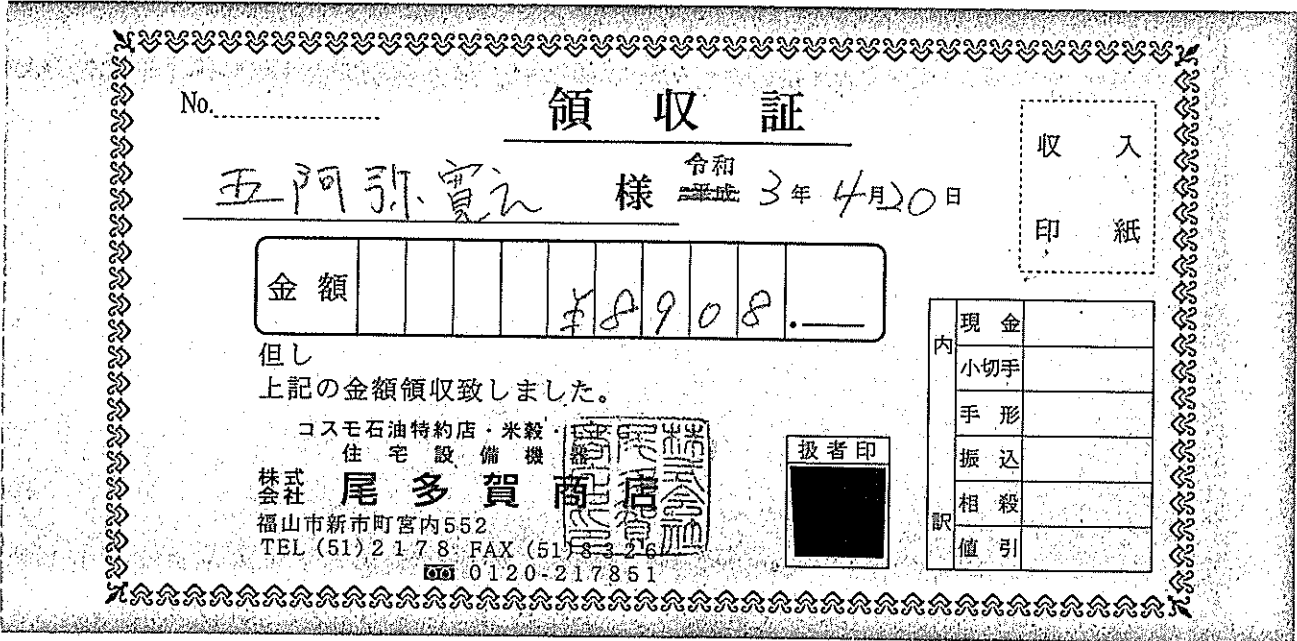 No.
領収証
収入
印紙
五阿弥寛之 様 令和 平成 3年 4月20日
金額 ¥8908.—
但し
上記の金額領収致しました。
コスモ石油特約店・米穀・
住宅設備機器
株式会社 尾多賀商店
福山市新市町宮内552
TEL (51)2178 FAX (51)8326
0120-217851
扱者印
内訳
現金
小切手
手形
振込
相殺
値引